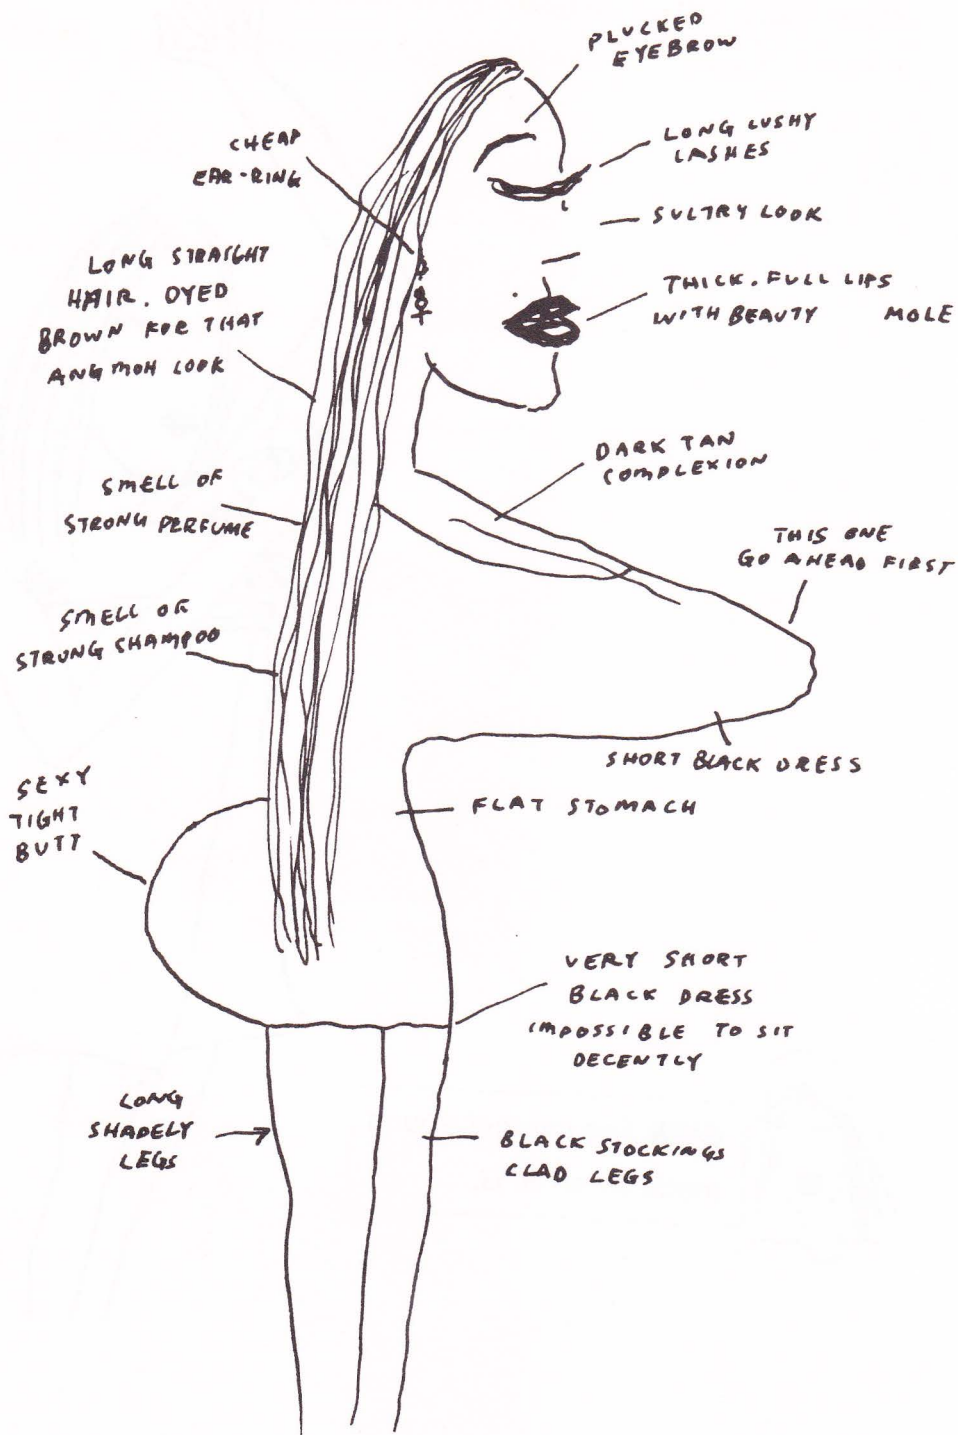 PLUCKED
EYEBROW
CHEAP
EAR-RING
LONG LUSHY
LASHES
SULTRY LOOK
LONG STRAIGHT
HAIR. DYED
BROWN FOR THAT
ANG MOH LOOK
THICK. FULL LIPS
WITH BEAUTY MOLE
DARK TAN
COMPLEXION
SMELL OF
STRONG PERFUME
THIS ONE
GO AHEAD FIRST
SMELL OF
STRONG SHAMPOO
SHORT BLACK DRESS
SEXY
TIGHT
BUTT
FLAT STOMACH
VERY SHORT
BLACK DRESS
IMPOSSIBLE TO SIT
DECENTLY
LONG
SHADELY
LEGS
BLACK STOCKINGS
CLAD LEGS